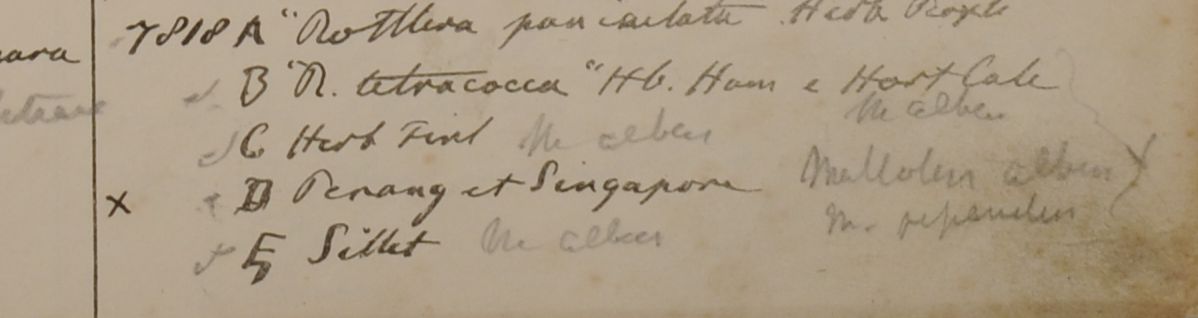 7818 A "Rottlera paniculata Herb Roxb
B "R. tetracocca" Hb. Ham e Hort Calc
M albus
C Herb Finl M albus
x D Penang et Singapore Mallotus albus
M. repandus
E Sillet M albus